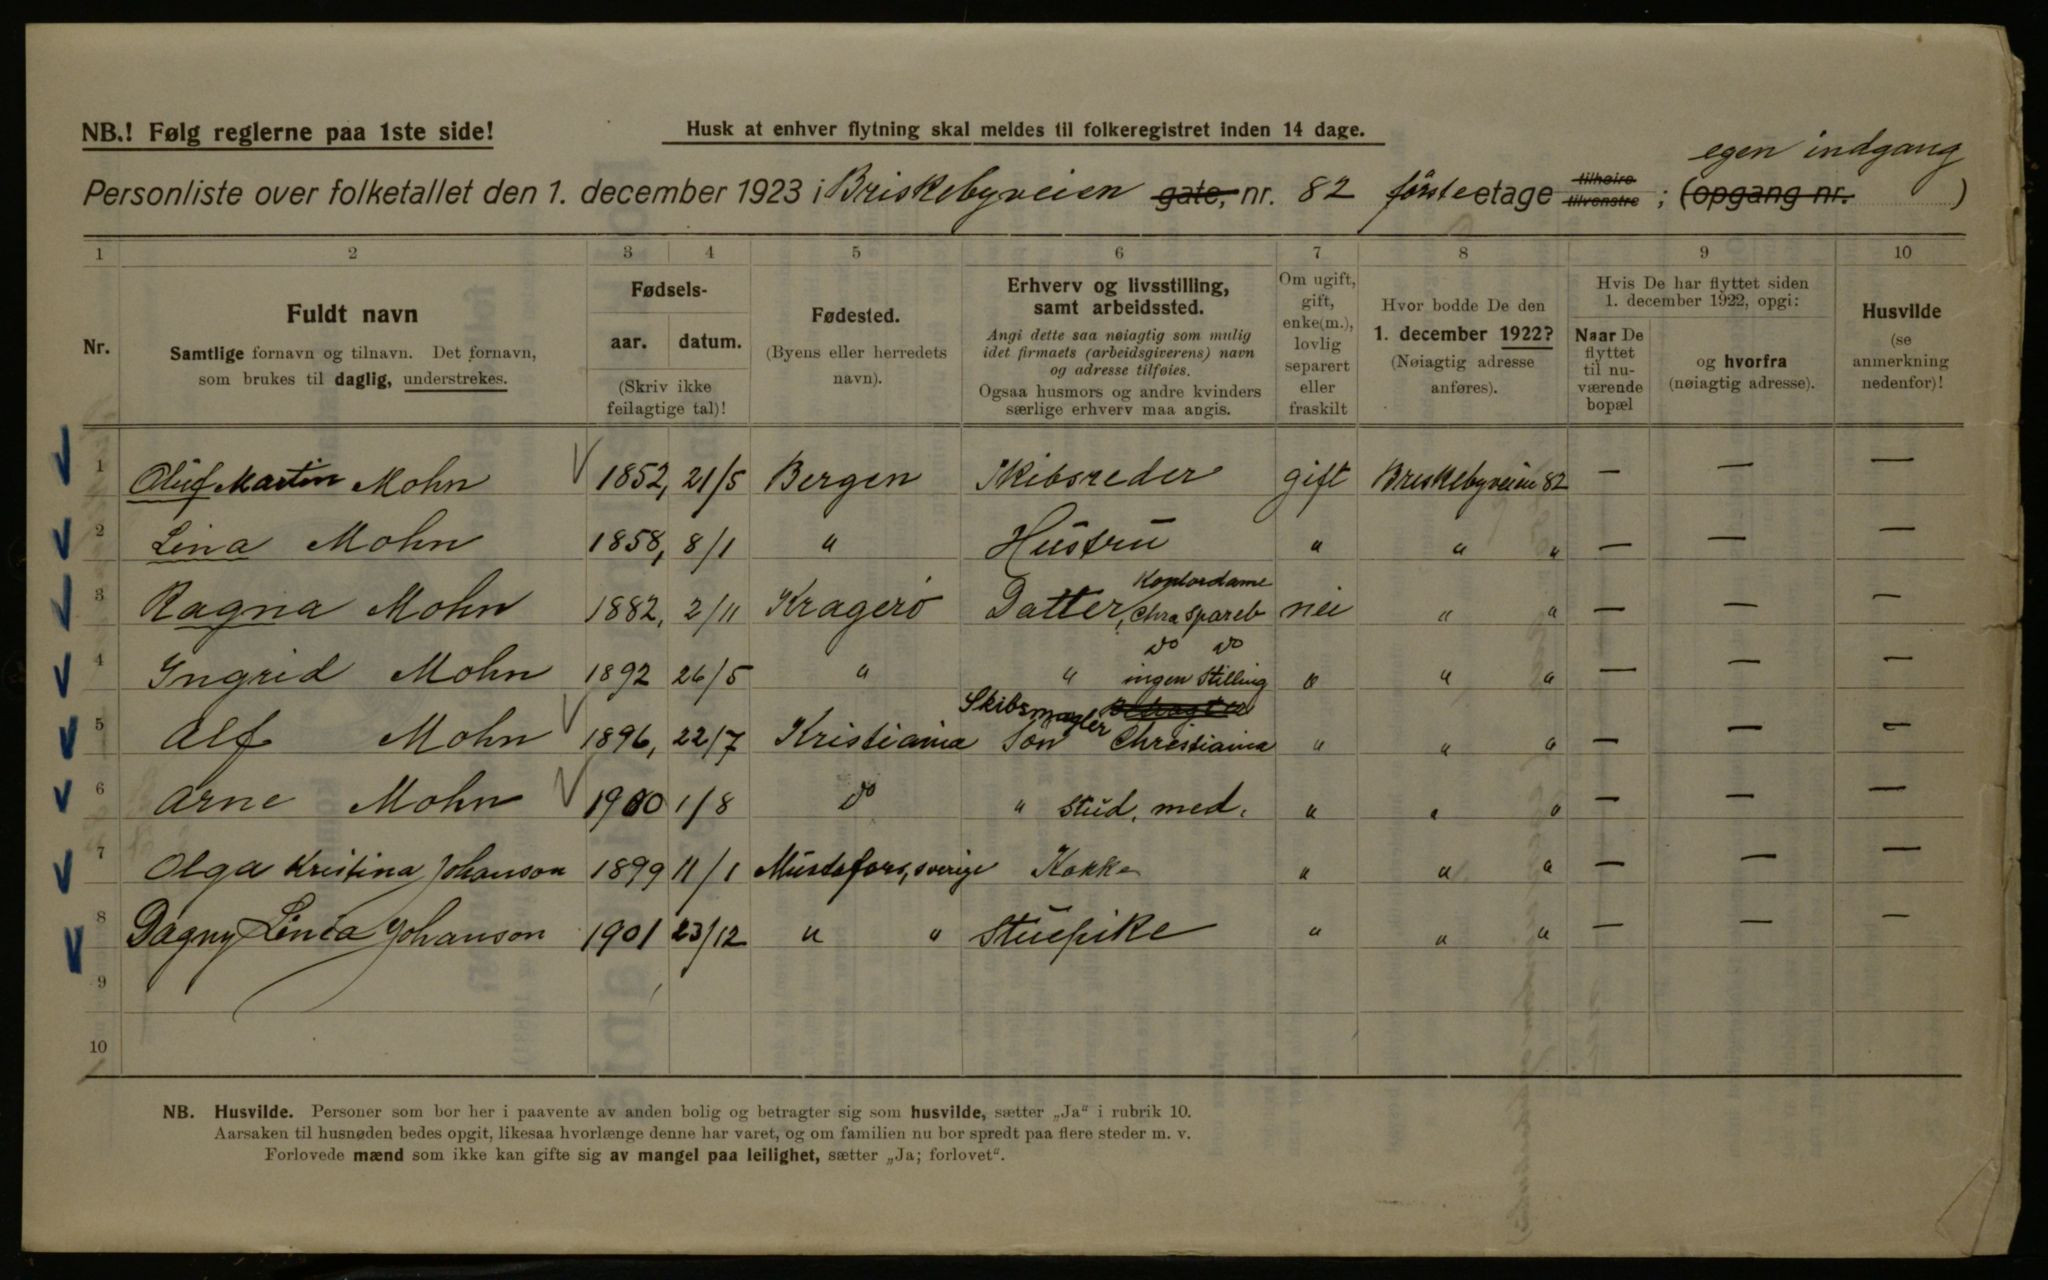 NB.! Følg reglerne paa 1ste side!
Husk at enhver flytning skal meldes til folkeregistret inden 14 dage.
egen indgang
Personliste over folketallet den 1. december 1923 i Briskebyveien gate, nr. 82 første etage tilhøire tilvenstre ; (opgang nr. )
1 2 3 4 5 6 7 8 9 10
Nr.
Fuldt navn
Samtlige fornavn og tilnavn. Det fornavn,
som brukes til daglig, understrekes.
Fødsels-
aar. datum.
(Skriv ikke
feilagtige tal)!
Fødested.
(Byens eller herredets
navn).
Erhverv og livsstilling,
samt arbeidssted.
Angi dette saa nøiagtig som mulig
idet firmaets (arbeidsgiverens) navn
og adresse tilføies.
Ogsaa husmors og andre kvinders
særlige erhverv maa angis.
Om ugift,
gift,
enke(m.),
lovlig
separert
eller
fraskilt
Hvor bodde De den
1. december 1922?
(Nøiagtig adresse
anføres).
Hvis De har flyttet siden
1. december 1922, opgi:
Naar De
flyttet
til nu-
værende
bopæl
og hvorfra
(nøiagtig adresse).
Husvilde
(se
anmerkning
nedenfor)!
1 Oluf Martin Mohn 1852, 21/5 Bergen Skibsreder gift Briskebyveien 82 — — —
2 Lina Mohn 1858, 8/1 " Hustru " " " — — —
Kontordame
3 Ragna Mohn 1882, 2/11 Kragerø Datter, Chra Spareb nei " " — — —
do do
4 Ingrid Mohn 1892 26/5 " " ingen stilling " " " — — —
Skibsmægler
5 Alf Mohn 1896, 22/7 Kristiania Søn Christiania " " " — — —
6 Arne Mohn 1900 1/8 do " stud. med. " " " — — —
7 Olga Kristina Johanson 1899 11/1 Mustafors, Sverige Kokke " " " — — —
8 Dagny Linea Johanson 1901 23/12 " " Stuepike " " " — — —
9
10
NB. Husvilde. Personer som bor her i paavente av anden bolig og betragter sig som husvilde, sætter „Ja" i rubrik 10.
Aarsaken til husnøden bedes opgit, likesaa hvorlænge denne har varet, og om familien nu bor spredt paa flere steder m. v.
Forlovede mænd som ikke kan gifte sig av mangel paa leilighet, sætter „Ja; forlovet".